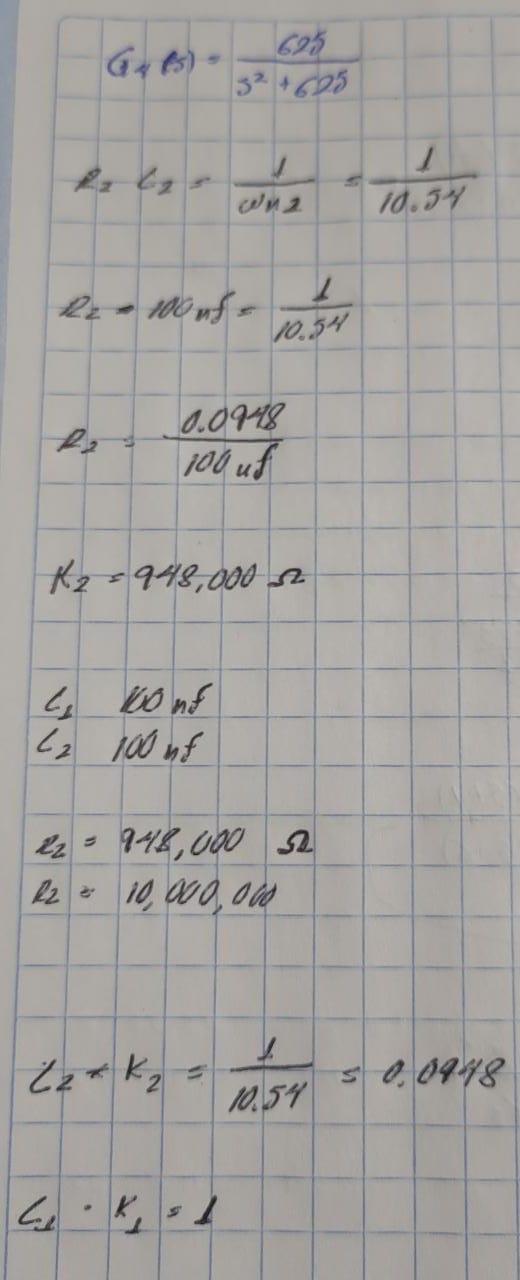 G4(s) = 625 / s² + 625
R2 C2 = 1 / ωn2 = 1 / 10.54
R2 - 100 nf = 1 / 10.54
R2 = 0.0948 / 100 nf
R2 = 948,000 Ω
C1 100 nf
C2 100 nf
R2 = 948,000 Ω
R2 = 10,000,000
C2 * R2 = 1 / 10.54 = 0.0948
C1 · R1 = 1